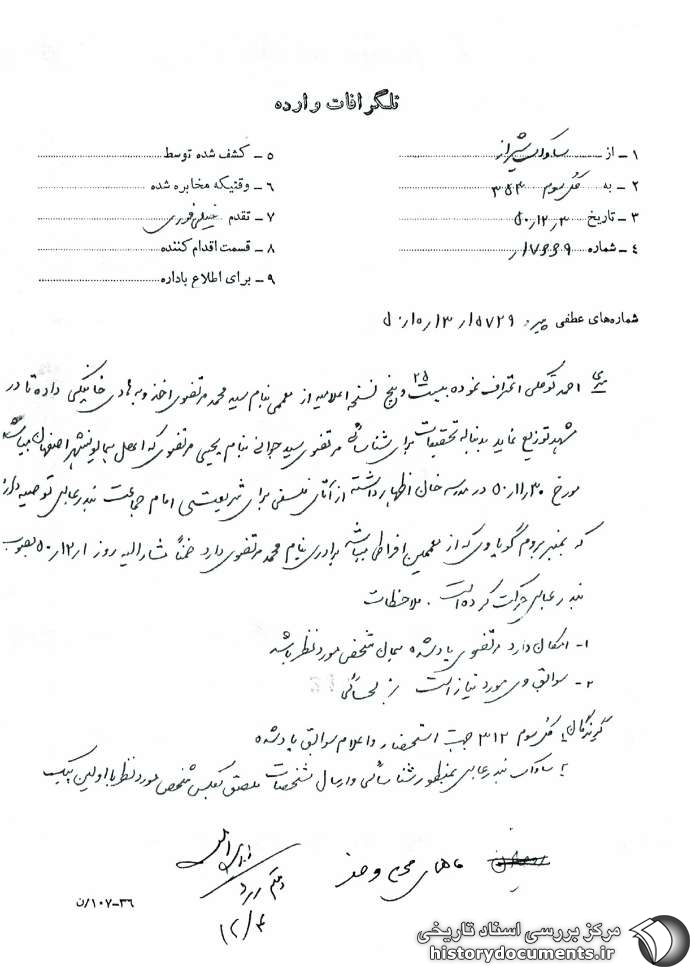 تلگرافات وارده
۱ – از ساواک شیراز
۲ – به کل سوم ۳۵۴
۳ – تاریخ ۵۰٫۱۲٫۳
۴ – شماره ۱۷۶۶۹/
۵ – کشف شده توسط
۶ – وقتیکه مخابره شده
۷ – تقدم خیلی فوری
۸ – قسمت اقدام کننده
۹ – برای اطلاع باداره
شماره‌های عطفی پیرو ۱۵۷۲۹/ ۳/ ۵/ ۵۰
احمد توکلی اعتراف نموده بیست و پنج ۲۵ نسخه اعلامیه از معممی بنام سید محمد مرتضوی اخذ و به هادی خانیکی داده تا در
مشهد توزیع نماید بدنباله تحقیقات برای شناسائی مرتضوی سید جوانی بنام یحیی مرتضوی که اهل همایونشهر اصفهان میباشد
مورخ ۵۰٫۱۱٫۳۰ در مدرسه خان اظهار داشته از آقای فلسفی برای شریعتی امام جماعت بندرعباس توصیه دارد
که بمنبر بروم گویا وی که از معممین افراطی میباشد برادری بنام محمد مرتضوی دارد ضمناً مشارالیه روز ۵۰٫۱۲٫۱ بصوب
بندرعباس حرکت کرده است . ملاحظات
۱- امکان دارد مرتضوی یاد شده همان شخص مورد نظر باشد
۲- سوابق وی مورد نیاز است
گیرندگان کل سوم ۳۱۲ جهت استحضار و اعلام سوابق یادشده
ساواک بندرعباس بمنظور شناسائی و ارسال مشخصات ملصق بعکس شخص مورد نظر با اولین پیک
۱۲/۴
۱۰۷–۳۶/ن
مرکز بررسی اسناد تاریخی
historydocuments.ir